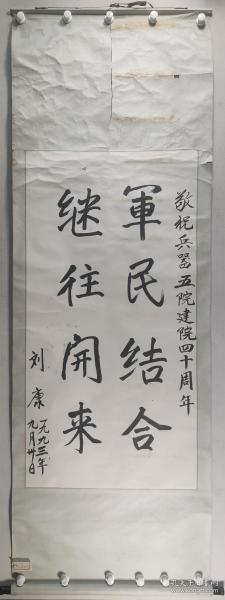 敬祝兵器五院建院四十周年
軍民结合
继往開来
刘康
一九九三年
九月廿日